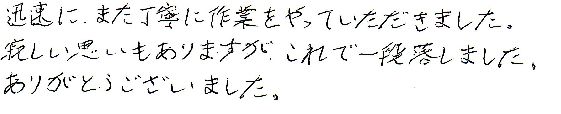 迅速に、また丁寧に作業をやっていただきました。
寂しい思いもありますが、これで一段落しました。
ありがとうございました。